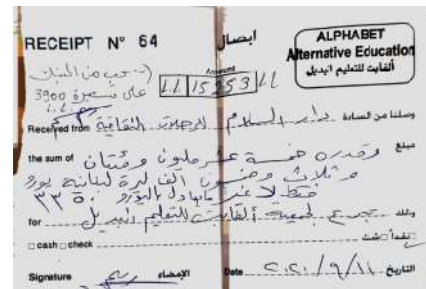 RECEIPT N° 64
ايصال
ALPHABET
Alternative Education
ألفابت للتعليم البديل
سحب من البنك
على تسعيرة 3900
ل.ل
Amount
L.L 15253 LL
Received from دار السلام للرحلات الثقافية وصلنا من السادة
the sum of وقدره خمسة عشر مليون ومئتان مبلغ
وثلاث وخمسون الف ليرة لبنانية
فقط لا غير ما يعادل باليورو ٣٣٥٠
for تبرع لجمعية ألفابت للتعليم البديل وذلك
cash check نقداً شك
Signature الإمضاء Date ٢٠٢٠/٩/١١ التاريخ